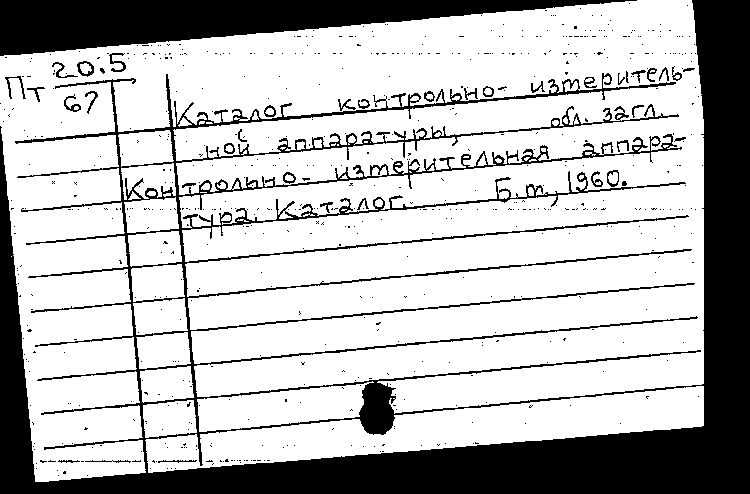 Пт 20.5
67
Каталог контрольно-измеритель-
ной аппаратуры, обл. загл.
Контрольно-измерительная аппара-
тура. Каталог. Б.м., 1960.